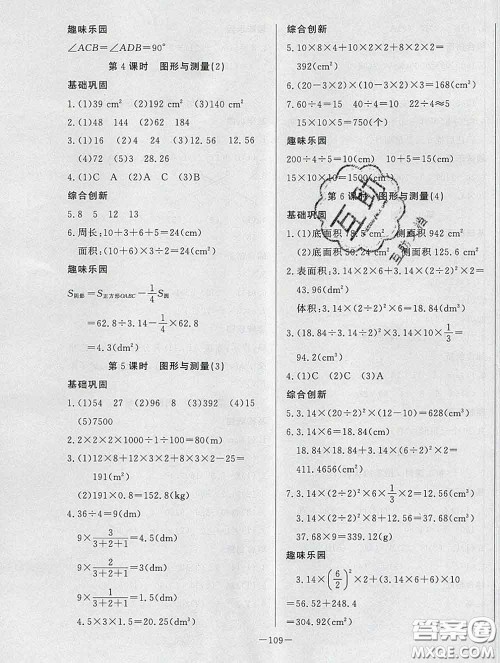 趣味乐园
∠ACB=∠ADB=90°
第4课时 图形与测量(2)
基础巩固
1.(1)39 cm² (2)192 cm² (3)140 cm²
2.(1)48 144 (2)150
3.(1)4 64 (2)24 (3)4 12.56 12.56
(4)72 (5)3 28.26
4.(1)C A (2)A (3)C
综合创新
5.8 5 12 13
6.周长:(10+3+6+5=24(cm)
面积:(10+6)×3÷2=24(cm²)
趣味乐园
S阴影=S正方形OABC-1/4 S圆
=62.8÷3.14-1/4×62.8
=4.3(dm²)
第5课时 图形与测量(3)
基础巩固
1.(1)54 27 (2)96 8 (3)392 (4)240
(5)7500
2.2×2×2×1000÷1÷100=80(m)
3.(1)12×8+12×3×2+8×3×2-25=
191(m²)
(2)191×0.8=152.8(kg)
4.36÷4=9(dm)
9×3/(3+2+1)=4.5(dm)
9×2/(3+2+1)=3(dm)
9×1/(3+2+1)=1.5(dm)
4.5×3×1.5=20.25(dm³)
综合创新
5.10×8×4+10×2×2+8×2×2=
392(cm²)
6.(20-3×2)×(10-2×3)×3=168(cm³)
7.60÷4=15 40÷4=10 22÷4≈5
15×10×5=750(个)
趣味乐园
200÷4÷5=10(cm) 10+5=15(cm)
15×10×10=1500(cm³)
第6课时 图形与测量(4)
基础巩固
1.(1)底面积78.5 cm² 侧面积942 cm²
(2)底面积50.24 cm² 侧面积125.6 cm²
2.表面积:3.14×(2÷2)²×2+3.14×2×6=
43.96(dm²)
体积:3.14×(2÷2)²×6=18.84(dm³)
3.(18.84÷3.14÷2)²×3.14×10×1/3=
94.2(cm³)
4.(1)C (2)C (3)A
综合创新
5.3.14×(20÷2)²×(12-10)=628(cm³)
6.3.14×6=18.84(cm)
3.14×(6÷2)²+18.84×(18.84+2)=
411.4656(cm²)
7.3.14×(6÷2)²×6×1/3×2÷[3.14×(6÷2)²]=
37.68×9=339.12(g)
趣味乐园
3.14×(6/2)²×2+(3.14×6+3.14×
=56.52+248.4
=304.92(cm²)
互助
答案圈
MXQE.COM
—109—